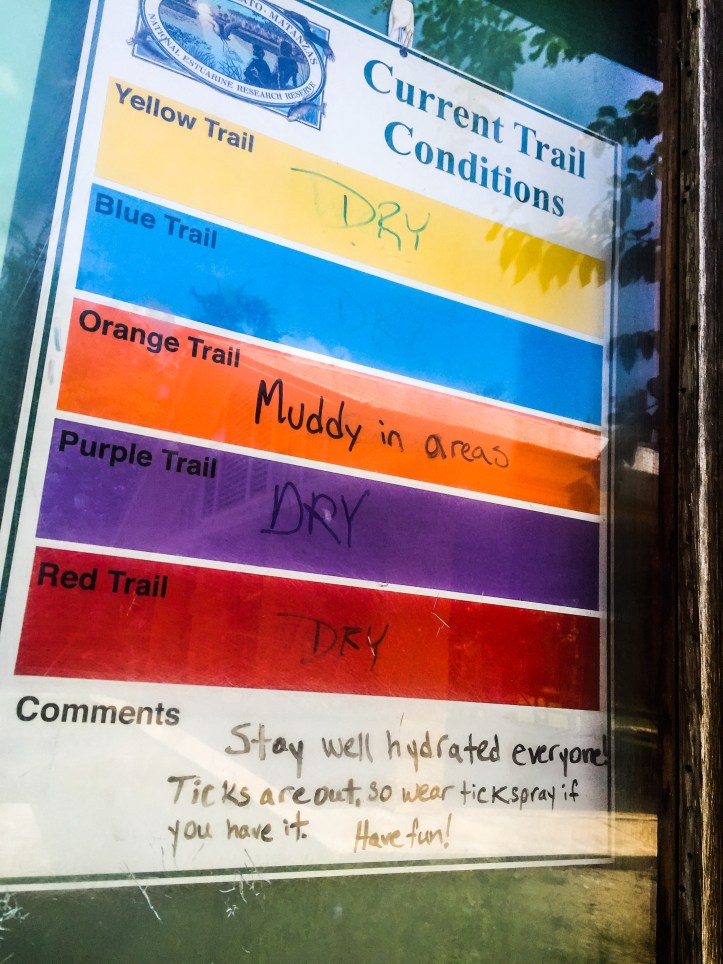 TO-MATANZAS
NATIONAL ESTUARINE RESEARCH RESERVE
Current Trail
Conditions
Yellow Trail
DRY
Blue Trail
DRY
Orange Trail
Muddy in areas
Purple Trail
DRY
Red Trail
DRY
Comments
Stay well hydrated everyone!
Ticks are out, so wear tick spray if
you have it. Have fun!